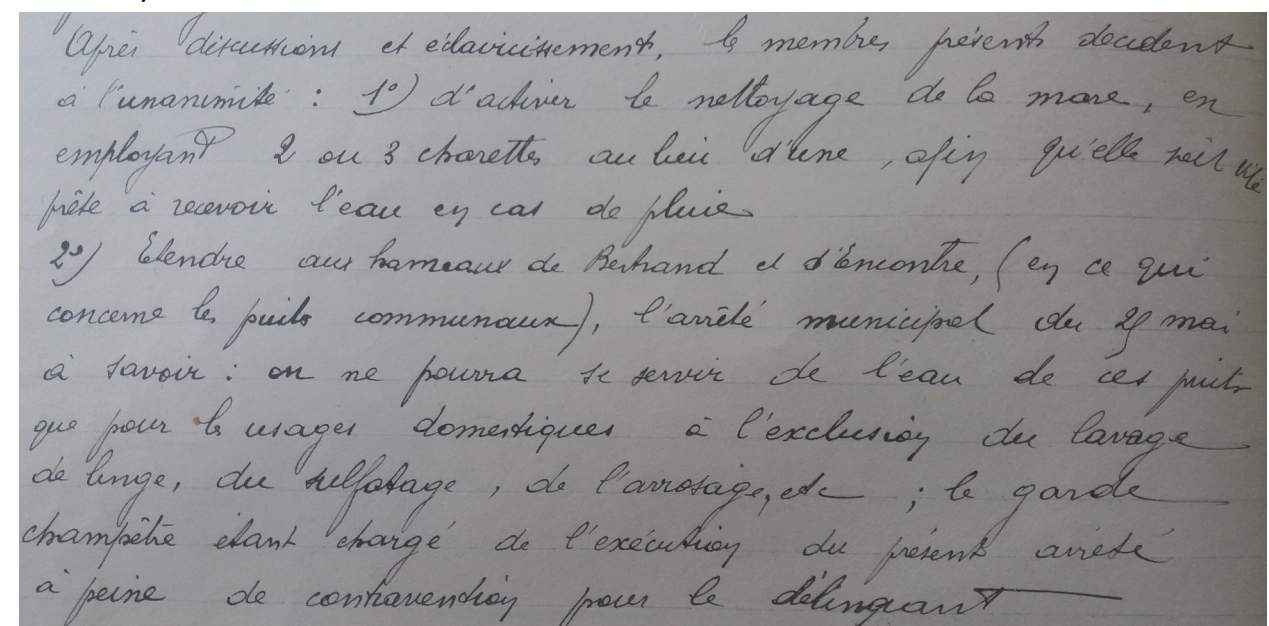 Après discussions et éclaircissements, les membres présents décident
à l'unanimité : 1°) d'activer le nettoyage de la mare, en
employant 2 ou 3 charettes au lieu d'une, afin qu'elle soit vite
prête à recevoir l'eau en cas de pluie
2°) Etendre aux hameaux de Bertrand et d'Encontre, (en ce qui
concerne les puits communaux), l'arrêté municipal du 29 mai
à savoir : on ne pourra se servir de l'eau de ces puits
que pour les usages domestiques à l'exclusion du lavage
de linge, du sulfatage, de l'arrosage, etc ; le garde
champêtre étant chargé de l'exécution du présent arrêté
à peine de contravention pour le délinquant